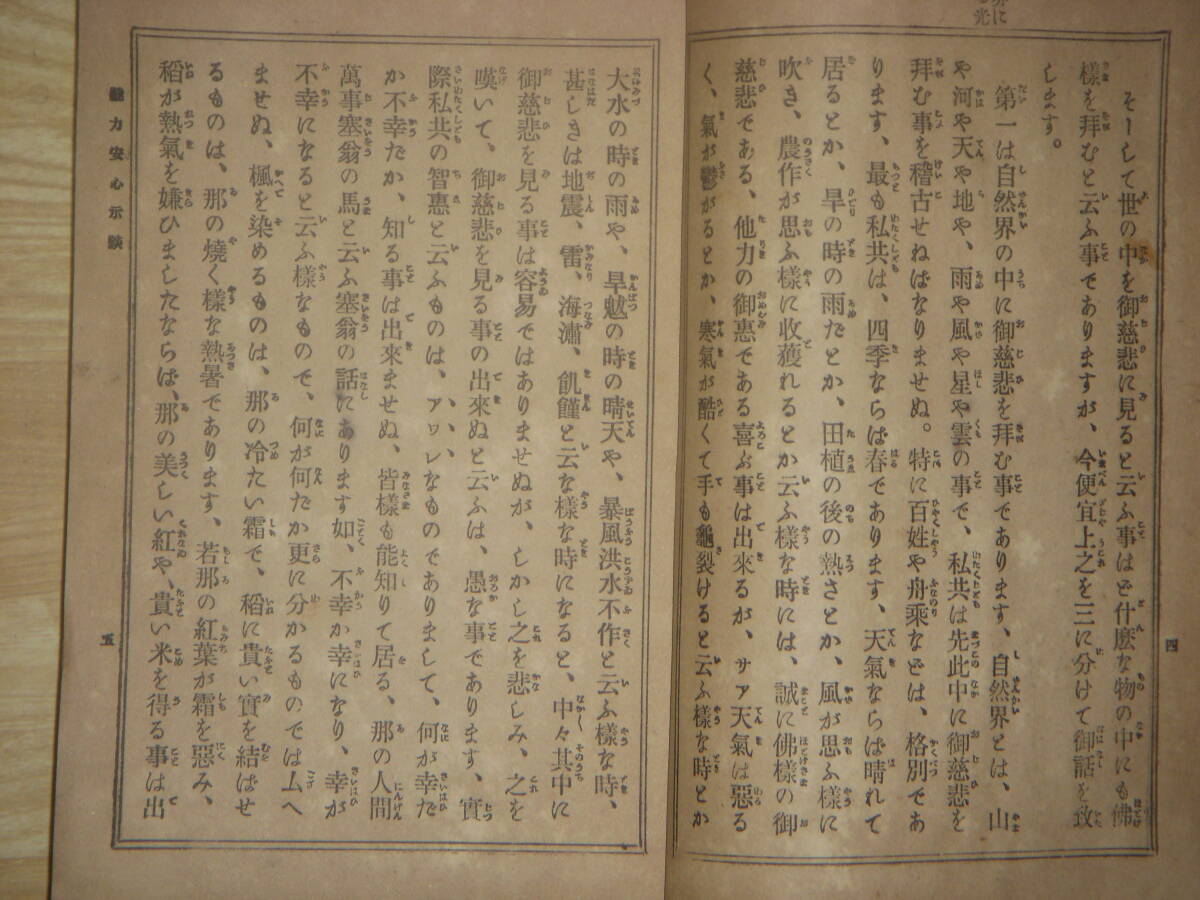 そーして世の中を御慈悲に見ると云ふ事はど什麽な物の中にも佛
樣を拜むと云ふ事でありますが、今便宜上之を三に分けて御話を致
します。
第一は自然界の中に御慈悲を拜む事であります、自然界とは、山
や河や天や地や、雨や風や星や雲の事で、私共は先此中に御慈悲を
拜む事を稽古せねばなりませぬ。特に百姓や舟乘などは、格別であ
ります、最も私共は、四季ならば春であります、天氣ならば晴れて
居るとか、旱の時の雨だとか、田植の後の熱さとか、風が思ふ樣に
吹き、農作が思ふ樣に收獲れるとか云ふ樣な時には、誠に佛樣の御
慈悲である、他力の御惠である喜ぶ事は出來るが、サァ天氣は惡る
く、氣が鬱がるとか、寒氣が酷くて手も龜裂けると云ふ樣な時とか
四
大水の時の雨や、旱魃の時の晴天や、暴風洪水不作と云ふ樣な時、
甚しきは地震、雷、海瀟、飢饉と云な樣な時になると、中々其中に
御慈悲を見る事は容易ではありませぬが、しかし之を悲しみ、之を
嘆いて、御慈悲を見る事の出來ぬと云ふは、愚な事であります、實
際私共の智惠と云ふものは、アヤレなものでありまして、何が幸だ
か不幸だか、知る事は出來ませぬ、皆樣も能知りて居る、那の人間
萬事塞翁の馬と云ふ塞翁の話にあります如、不幸か幸になり、幸が
不幸になると云ふ樣なもので、何が何だか更に分かるものでは厶へ
ませぬ、楓を染めるものは、那の冷たい霜で、稻に貴い實を結ばせ
るものは、那の燒く樣な熱暑であります、若那の紅葉が霜を惡み、
稻が熱氣を嫌ひましたならば、那の美しい紅や、貴い米を得る事は出
力安心示談
五